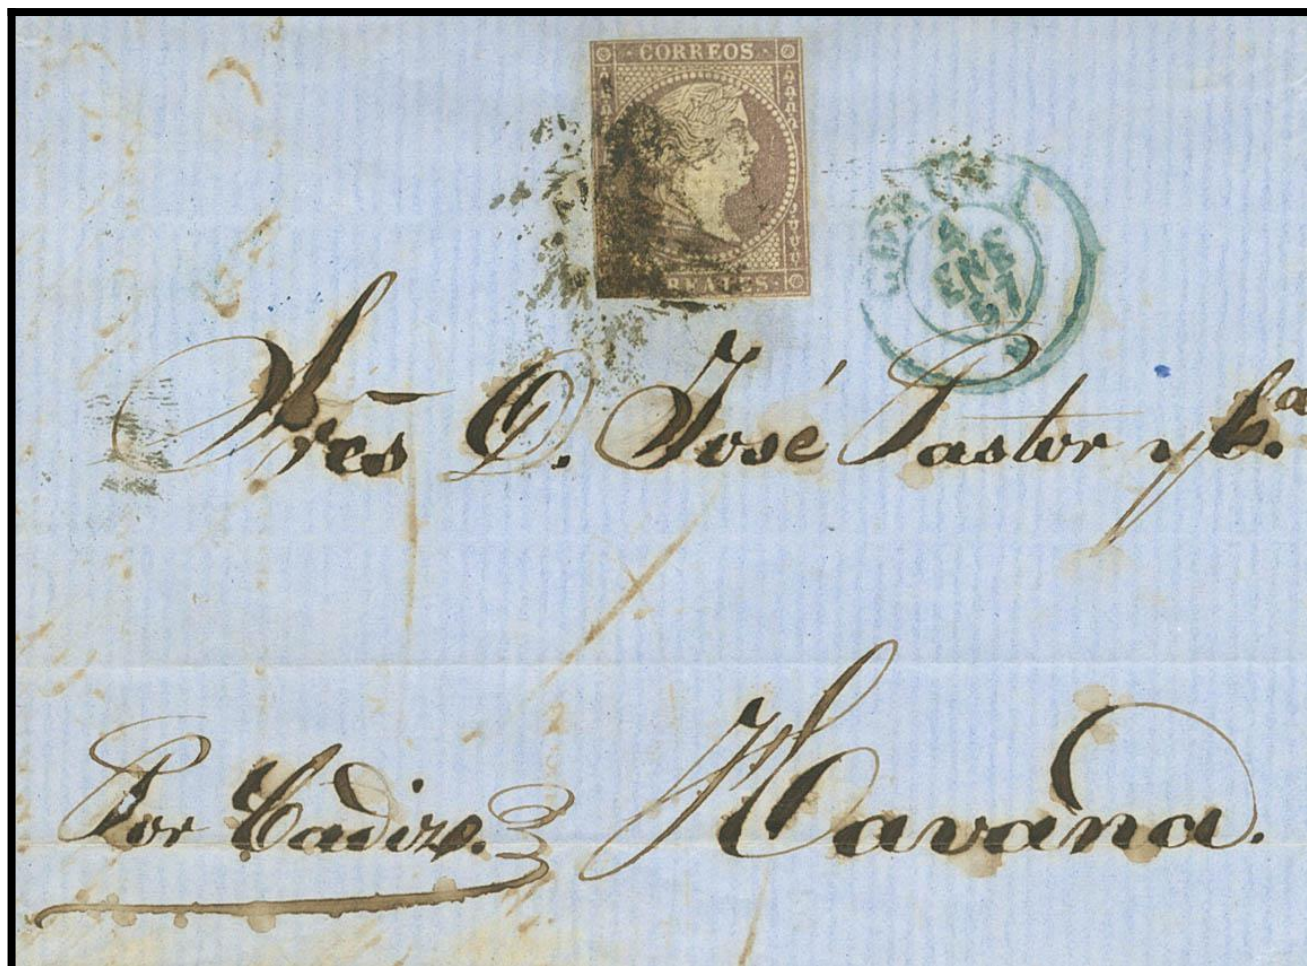 CORREOS
REALES
ENE
57
Sres D. José Pastor y Cª
Por Cadiz.
Havana.